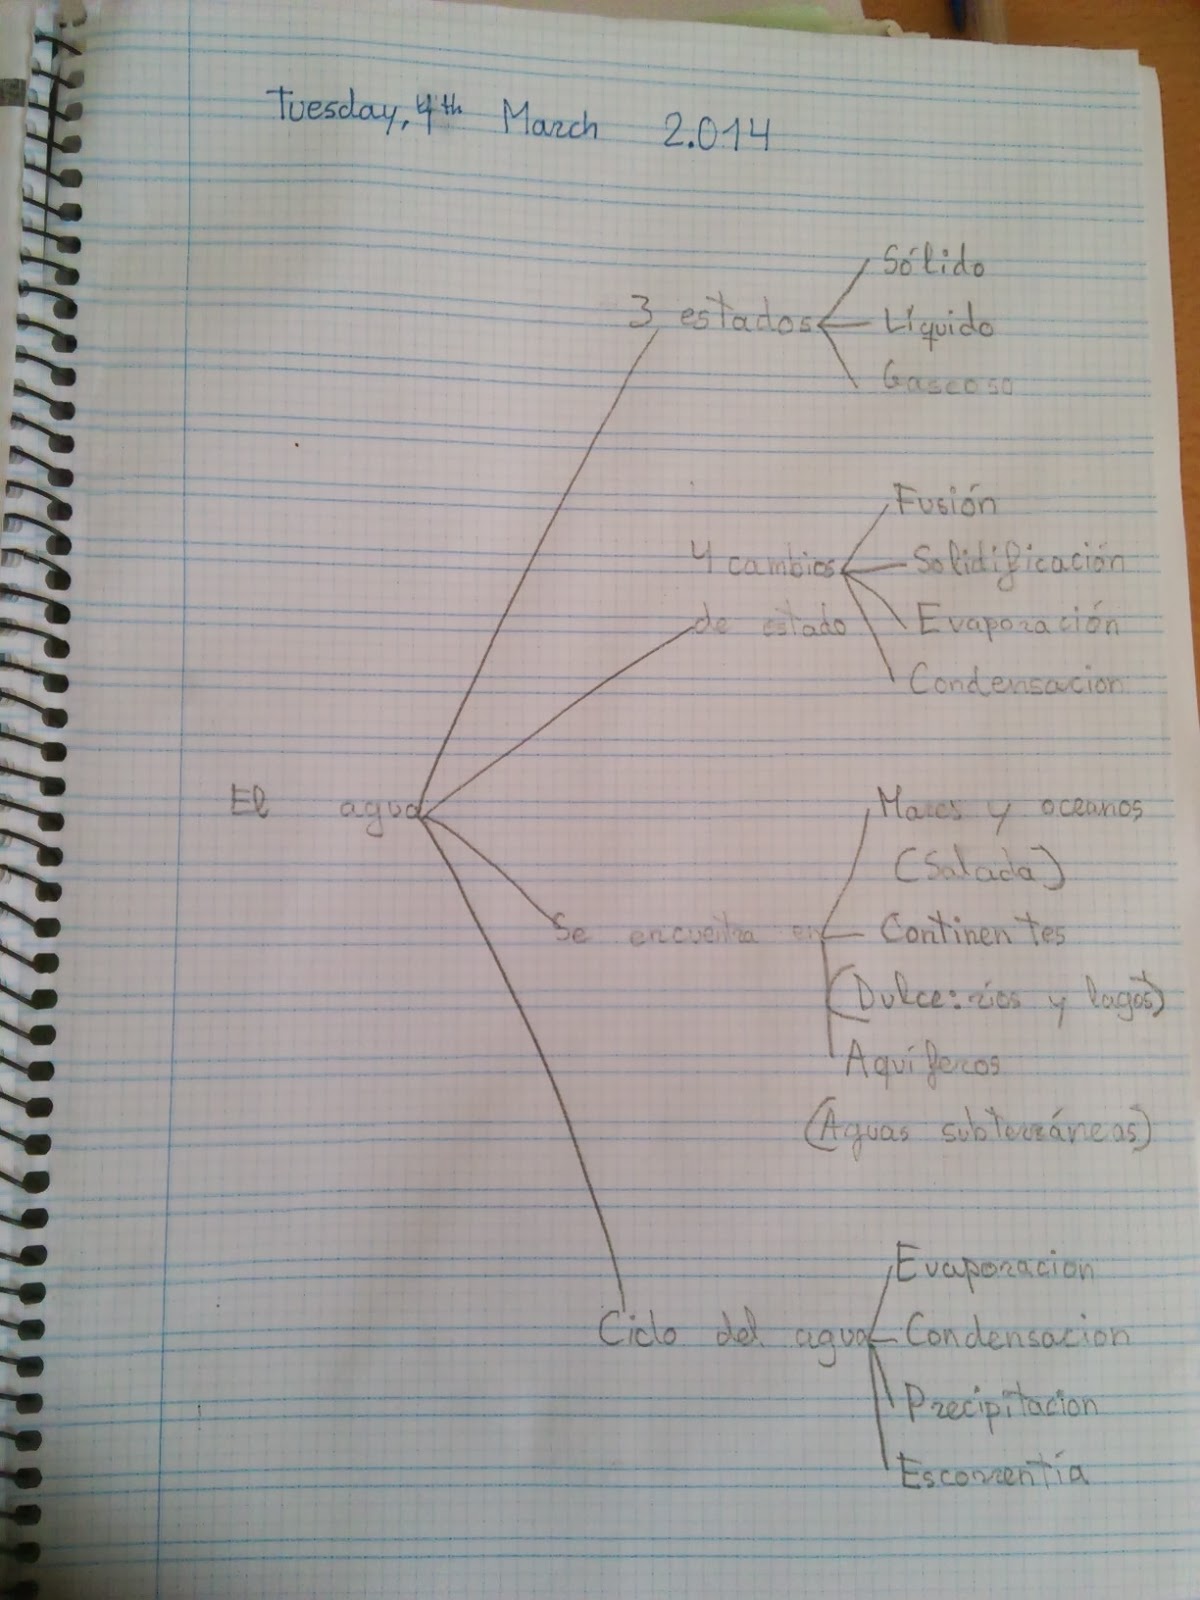 Tuesday, 4th March 2.014
Sólido
3 estados
Líquido
Gaseoso
Fusión
4 cambios
Solidificación
de estado
Evaporación
Condensacion
El agua
Mares y oceanos
(Salada)
Se encuentra en
Continentes
(Dulce: ríos y lagos)
Aquíferos
(Aguas subterráneas)
Evaporacion
Ciclo del agua
Condensacion
Precipitacion
Escorrentía